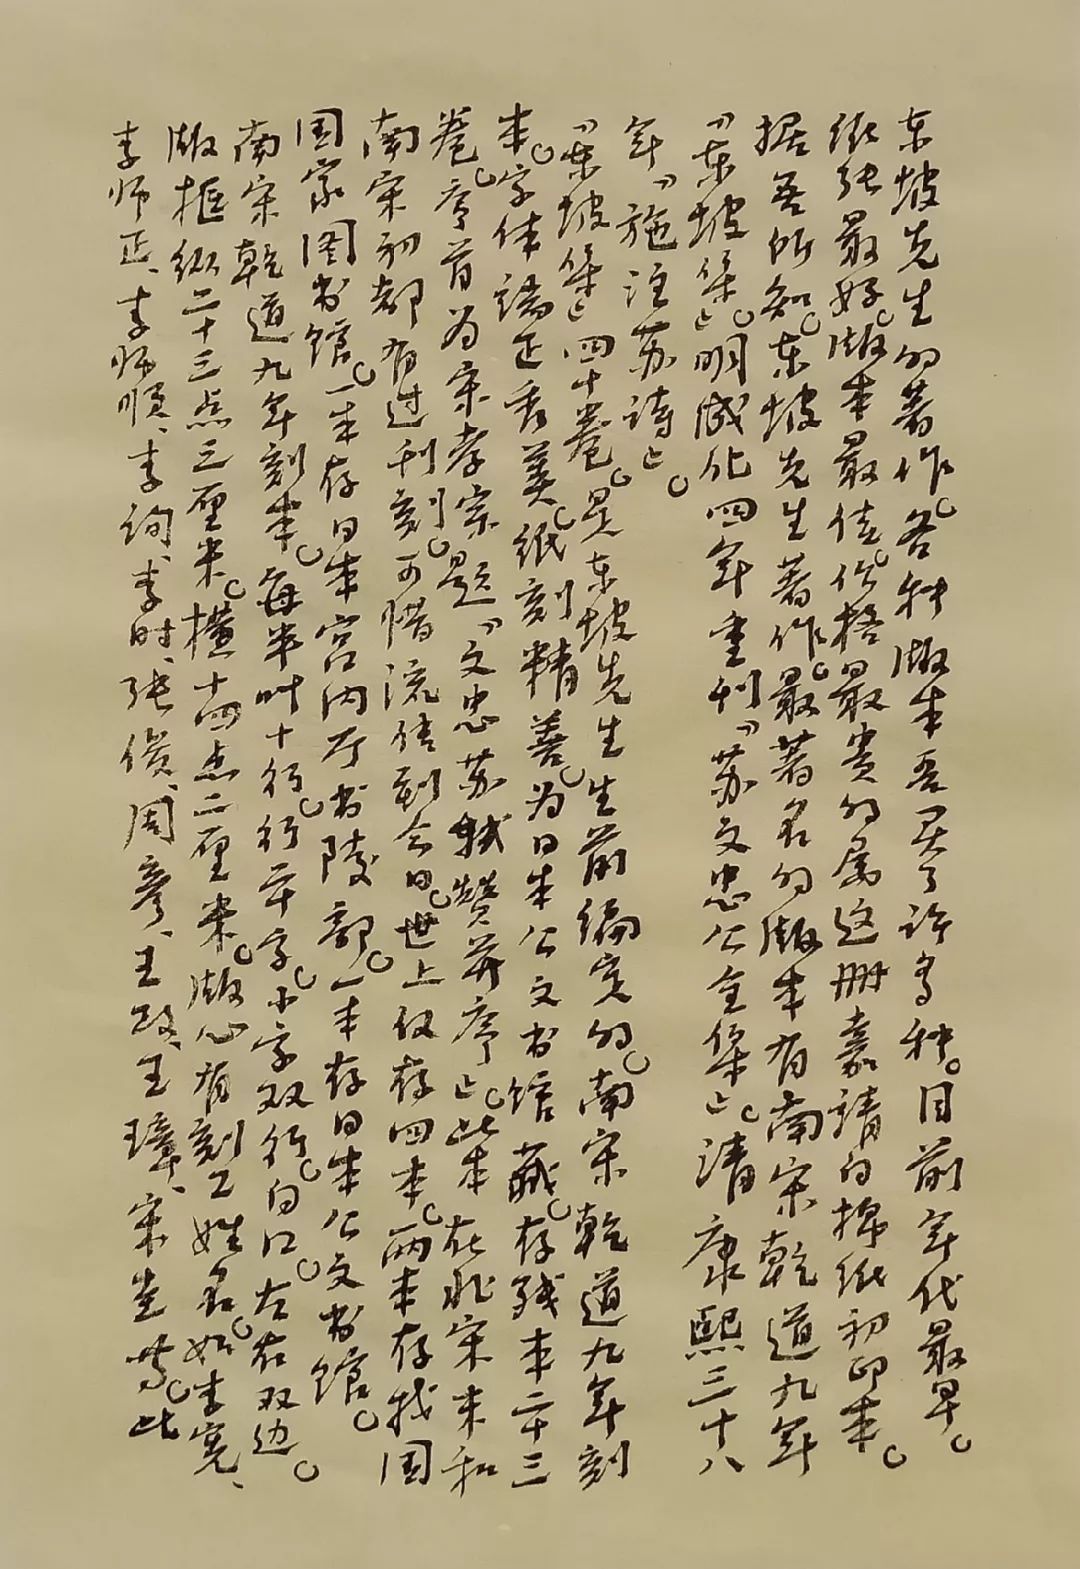 东坡先生的著作。各种版本吾买了许多种。目前年代最早。
纸张最好。版本最佳。价格最贵的属这册嘉靖白棉纸初印本。
据吾所知。东坡先生著作。最著名的版本有南宋乾道九年
『东坡集』。明成化四年重刊『苏文忠公全集』。清康熙三十八
年『施注苏诗』。
『东坡集』四十卷。是东坡先生生前编定的。南宋乾道九年刻
本。字体端正秀美。纸刻精善。为日本公文书馆藏。存残本二十三
卷。序首为宋孝宗题『文忠苏轼赞并序』。此本在北宋末和
南宋初都有过刊刻。可惜流传到今日。世上仅存四本。两本存我国
国家图书馆。一本存日本宫内厅书陵部。一本存日本公文书馆。
南宋乾道九年刻本。每半叶十行。行二十字。小字双行。白口。左右双边。
版框纵二十三点三厘米。横十四点二厘米。版心有刻工姓名。如李宪、
李师正、李师顺、李询、李时、张俊、周彦、王政、王璋、宋圭等。此